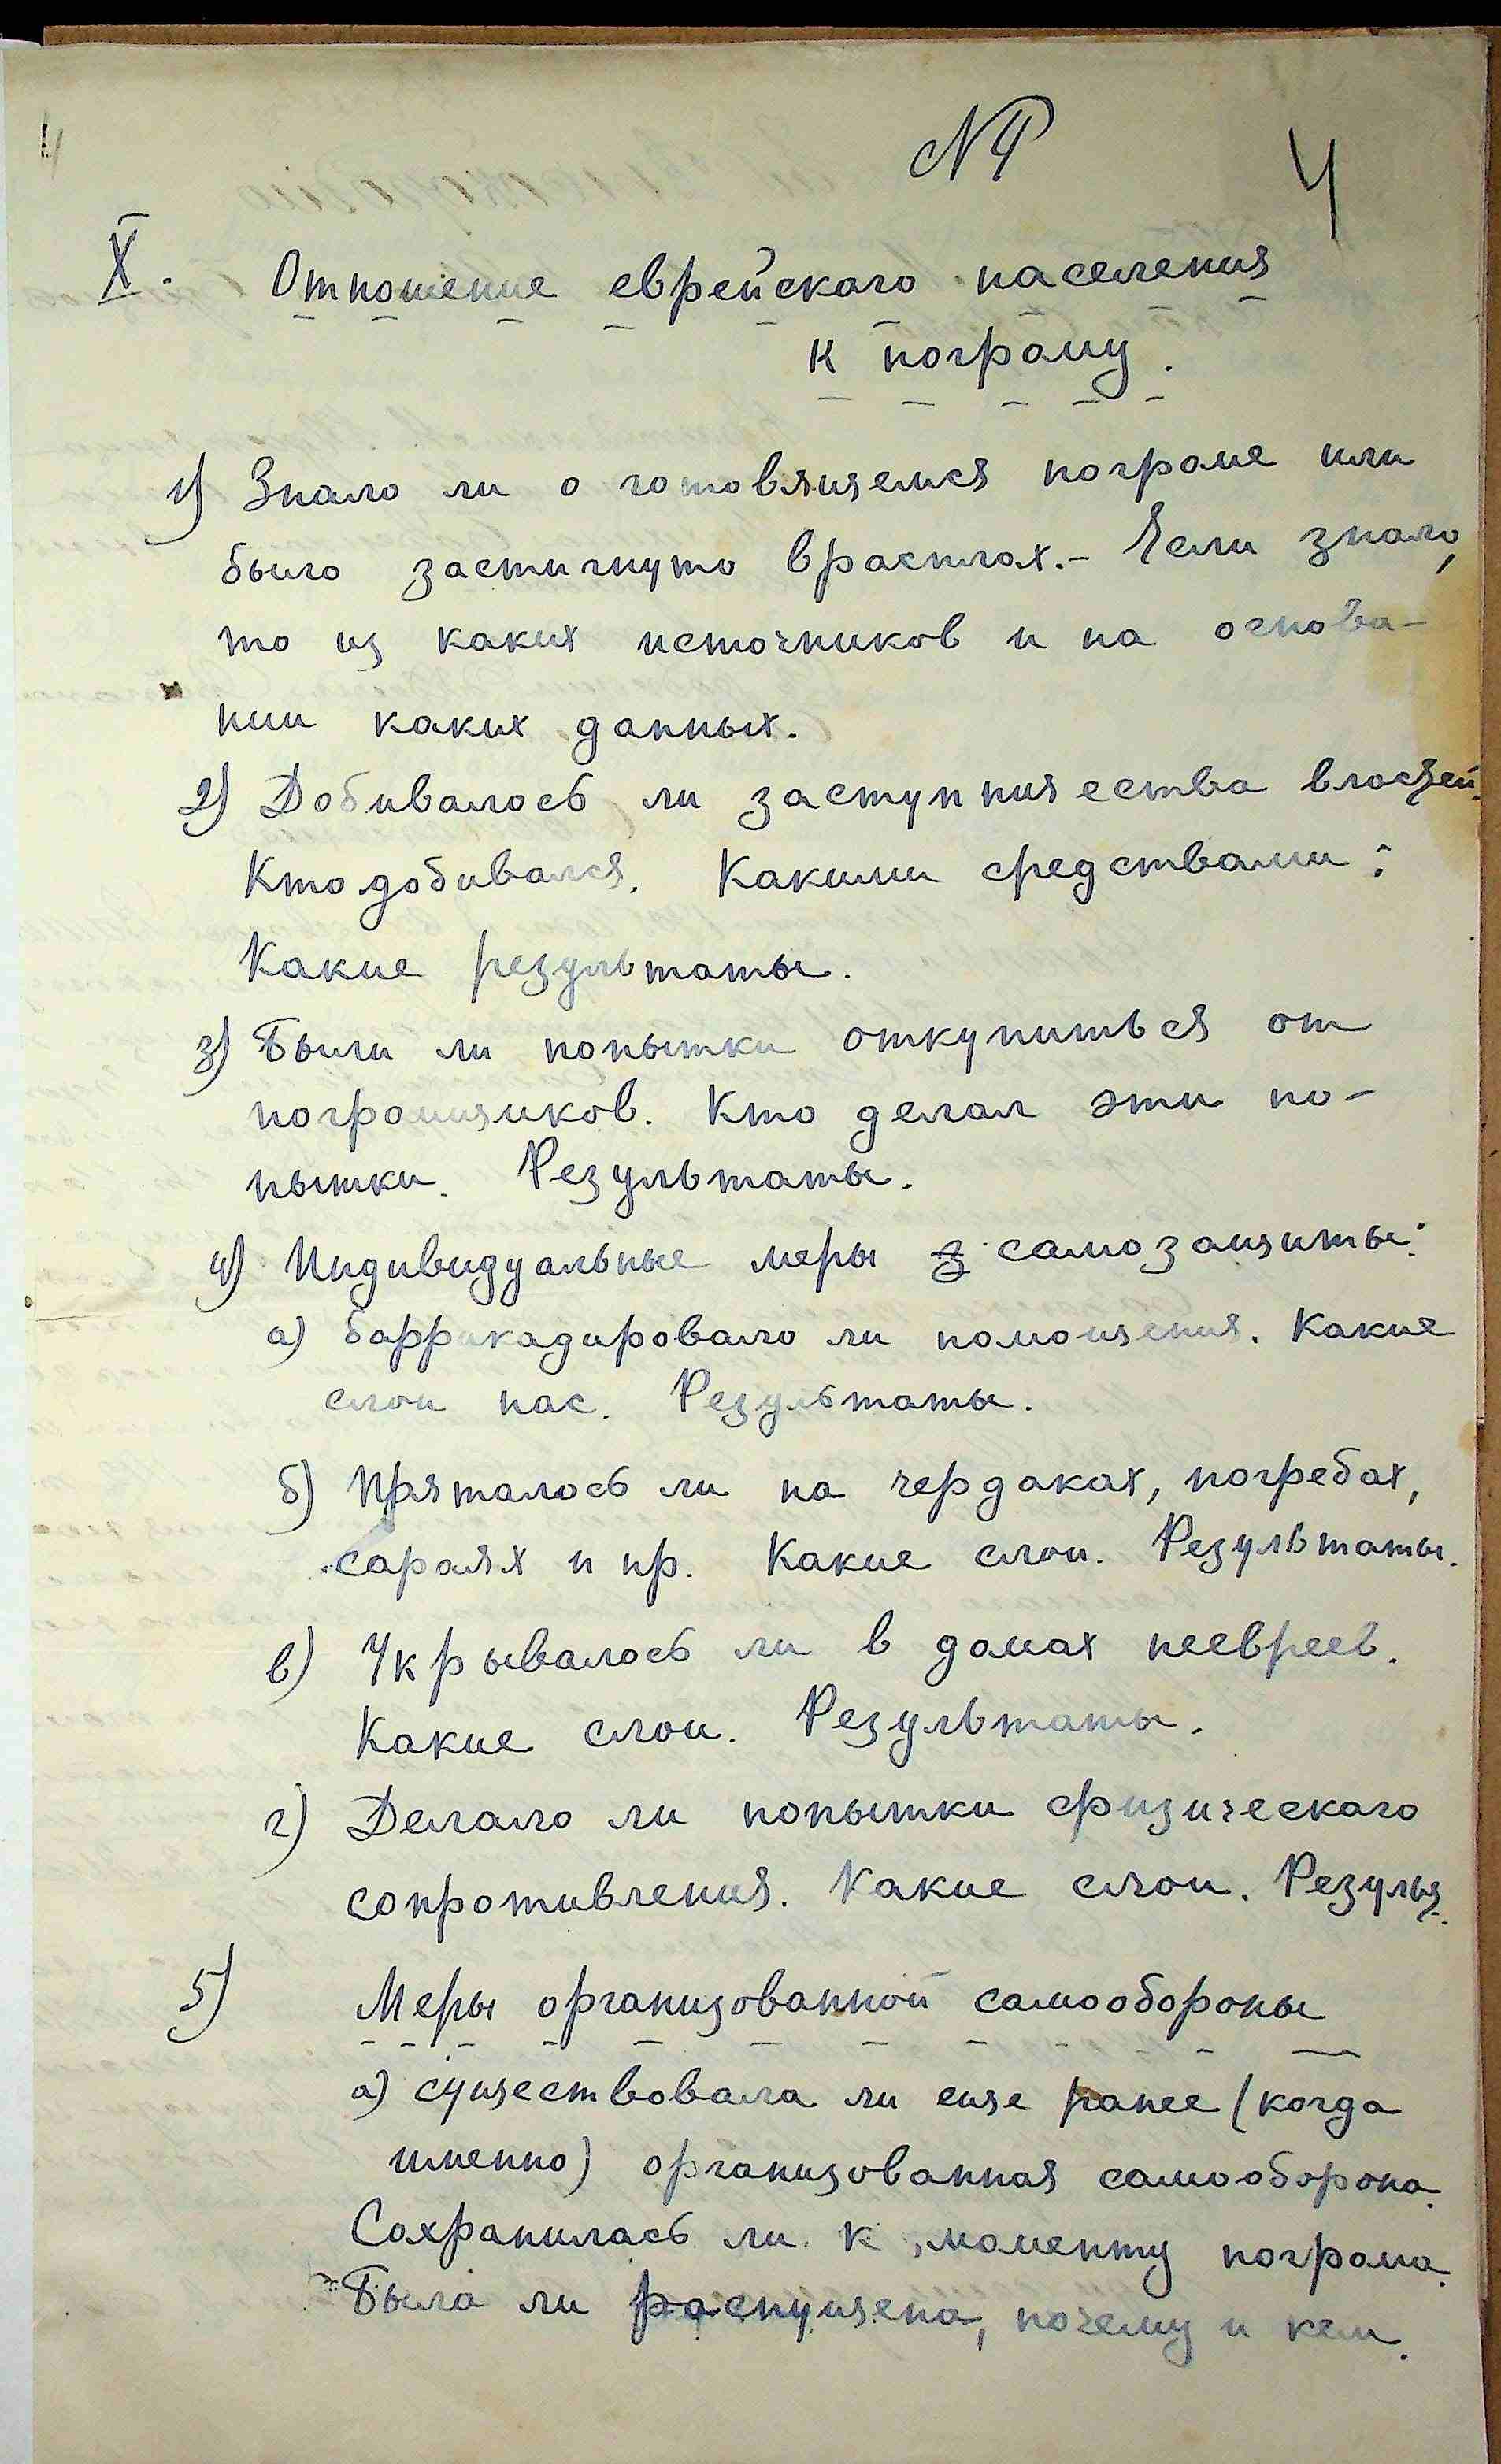 № 4
4
X. Отношение еврейскаго населения
к погрому.
1) Знало ли о готовящемся погроме или
было застигнуто врасплох.- Если знало,
то из каких источников и на основа-
нии каких данных.
2) Добивалось ли заступничества властей.
Кто добивался. Какими средствами:
Какие результаты.
3) Были ли попытки откупиться от
погромщиков. Кто делал эти по-
пытки. Результаты.
4) Индивидуальные меры самозащиты:
а) баррикадировало ли помещения. Какие
слои нас. Результаты.
б) Пряталось ли на чердаках, погребах,
сараях и пр. Какие слои. Результаты.
в) Укрывалось ли в домах неевреев.
Какие слои. Результаты.
г) Делало ли попытки физическаго
сопротивления. Какие слои. Резуль.
5) Меры организованной самообороны
а) существовала ли еще ранее (когда
именно) организованная самооборона.
Сохранилась ли к моменту погрома.
Была ли распущена, почему и кем.